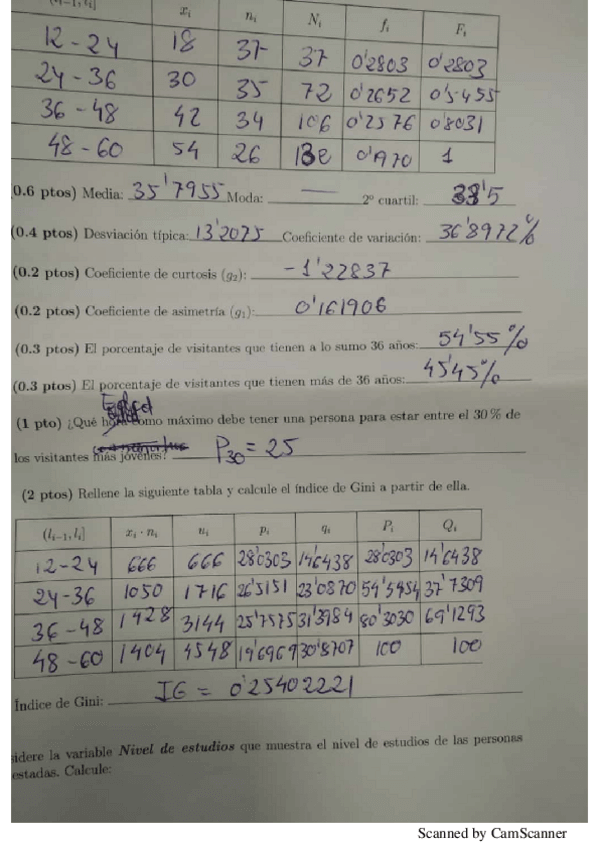 (l_{i-1}, l_i] x_i n_i N_i f_i F_i
12 - 24 18 37 37 0'2803 0'2803
24 - 36 30 35 72 0'2652 0'5455
36 - 48 42 34 106 0'2576 0'8031
48 - 60 54 26 132 0'1970 1
(0.6 ptos) Media: 35'7955 Moda: — 2º cuartil: 33'5
(0.4 ptos) Desviación típica: 13'2075 Coeficiente de variación: 36'8972%
(0.2 ptos) Coeficiente de curtosis (g₂): -1'22837
(0.2 ptos) Coeficiente de asimetría (g₁): 0'161906
(0.3 ptos) El porcentaje de visitantes que tienen a lo sumo 36 años: 54'55%
(0.3 ptos) El porcentaje de visitantes que tienen más de 36 años: 45'45%
Edad
(1 pto) ¿Qué hora como máximo debe tener una persona para estar entre el 30 % de
los visitantes más jóvenes? P₃₀ = 25
(2 ptos) Rellene la siguiente tabla y calcule el índice de Gini a partir de ella.
(l_{i-1}, l_i] x_i · n_i u_i p_i q_i P_i Q_i
12-24 666 666 28'0303 14'6438 28'0303 14'6438
24-36 1050 1716 26'5151 23'0870 54'5454 37'7309
36-48 1428 3144 25'7575 31'3984 80'3030 69'1293
48-60 1404 4548 19'6969 30'8707 100 100
Índice de Gini: IG = 0'25402221
sidere la variable Nivel de estudios que muestra el nivel de estudios de las personas
estadas. Calcule:
Scanned by CamScanner